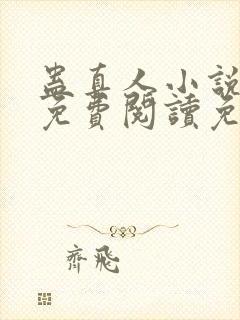 蛊真人小說
免費閱讀免
齊飛